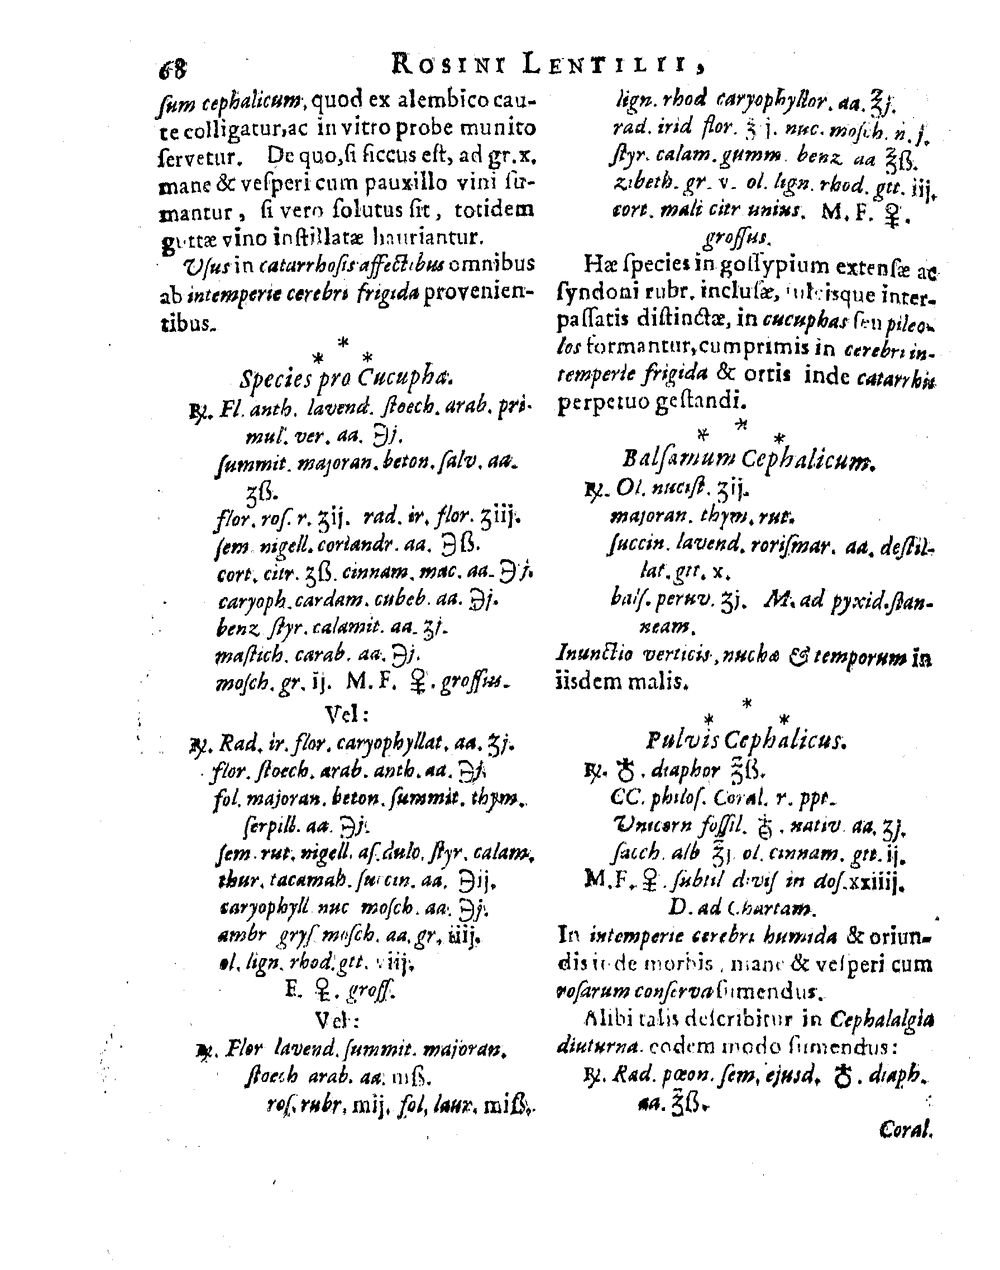 68
ROSINI LENTILII,
ſum cephalicum, quod ex alembico cau-
te colligatur, ac in vitro probe munito
ſervetur. De quo, ſi ſiccus eſt, ad gr. x.
mane & veſperi cum pauxillo vini ſu-
mantur, ſi vero ſolutus ſit, totidem
guttæ vino inſtillatæ hauriantur.
Uſus in catarrhoſis affectibus omnibus
ab intemperie cerebri frigida provenien-
tibus.
*
* *
Species pro Cucupha.
℞. Fl. anth. lavend. ſtoech. arab. pri-
mul. ver. aa. ℈j.
ſummit. majoran. beton. ſalv. aa.
ʒß.
flor. roſ. r. ʒij. rad. ir. flor. ʒiij.
ſem nigell. coriandr. aa. ℈ß.
cort. citr. ʒß. cinnam. mac. aa. ℈j.
caryoph. cardam. cubeb. aa. ℈j.
benz ſtyr. calamit. aa. ʒj.
maſtich. carab. aa. ℈j.
moſch. gr. ij. M. F. ♀. groſſus.
Vel:
℞. Rad. ir. flor. caryophyllat. aa. ʒj.
flor. ſtoech. arab. anth. aa. ℈j.
fol. majoran. beton. ſummit. thym.
ſerpill. aa. ℈j.
ſem. rut. nigell. aſ. dulo. ſtyr. calam.
thur. tacamah. ſuccin. aa. ℈ij.
caryophyll nuc moſch. aa. ℈j.
ambr gryſ moſch. aa. gr. iiij.
ol. lign. rhod. gtt. viij.
F. ♀. groſſ.
Vel:
℞. Flor lavend. ſummit. majoran.
ſtoech arab. aa. mß.
roſ. rubr. mij. fol. laur. miß.
lign. rhod caryophyllor. aa. ℥j.
rad. irid flor. ℥ j. nuc. moſch. n. j.
ſtyr. calam. gumm. benz aa ℥ß.
zibeth. gr. v. ol. lign. rhod. gtt. iij.
cort. mali citr unius. M. F. ♀.
groſſus.
Hæ ſpecies in goſſypium extenſæ ac
ſyndoni rubr. incluſæ, ulciſque inter-
paſſatis diſtinctæ, in cucuphas ſeu pileo-
los formantur, cumprimis in cerebri in-
temperie frigida & ortis inde catarrhis
perpetuo geſtandi.
*
* *
Balſamum Cephalicum.
℞. Ol. nuciſt. ʒij.
majoran. thym. rut.
ſuccin. lavend. roriſmar. aa. deſtil-
lat. gtt. x.
balſ. peruv. ʒj. M. ad pyxid. ſtan-
neam.
Inunctio verticis, nuchæ & temporum in
iisdem malis.
*
* *
Pulvis Cephalicus.
℞. ♁. diaphor ℥ß.
CC. philoſ. Coral. r. ppt.
Unicorn foſſil. nativ aa. ʒj.
ſacch. alb ℥j ol. cinnam. gtt. ij.
M. F. ♀. ſubtil diviſ in doſ. xxiiij.
D. ad Chartam.
In intemperie cerebri humida & oriun-
dis inde morbis, mane & veſperi cum
roſarum conſerva ſumendus.
Alibi talis deſcribitur in Cephalalgia
diuturna. eodem modo ſumendus:
℞. Rad. pœon. ſem, ejusd. ♁. diaph.
aa. ℥ß.
Coral.